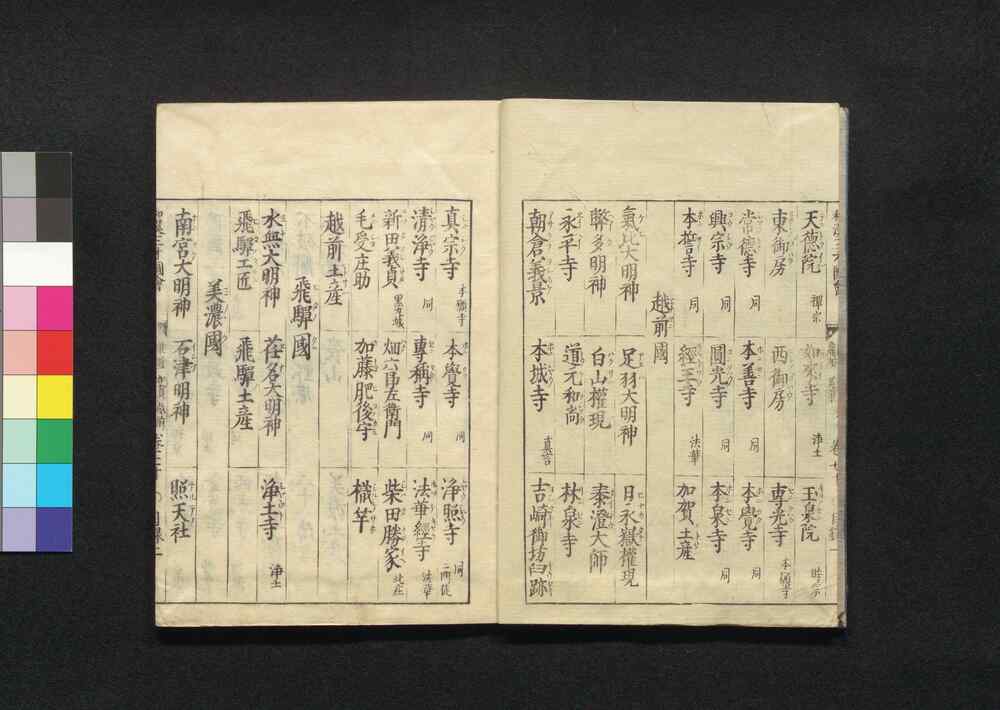 天德院 禪宗 如来寺 浄土 玉泉院 時宗
東御房 西御房 專光寺 本願寺
常德寺 同 本善寺 同 本覺寺 同
興宗寺 同 圓光寺 同 本泉寺 同
本誓寺 同 經王寺 法華 加賀土産
越前國
氣比大明神 足羽大明神 日永嶽權現
白山權現 泰澄大師
永平寺 道元和尚 林泉寺
朝倉義景 本城寺 真言 吉崎御坊臼跡
真宗寺 本願寺 本覺寺 同 浄照寺 同
清浄寺 同 專稱寺 同 法華經寺 法華
新田義貞 黒丸城 畑六郎左衛門 柴田勝家 北庄
毛受庄助 加藤肥後守 檥竿
越前土産
飛驒國
水無大明神 荏名大明神 浄土寺 浄土
飛驒工匠 飛驒土産
美濃國
南宮大明神 石津明神 照天社